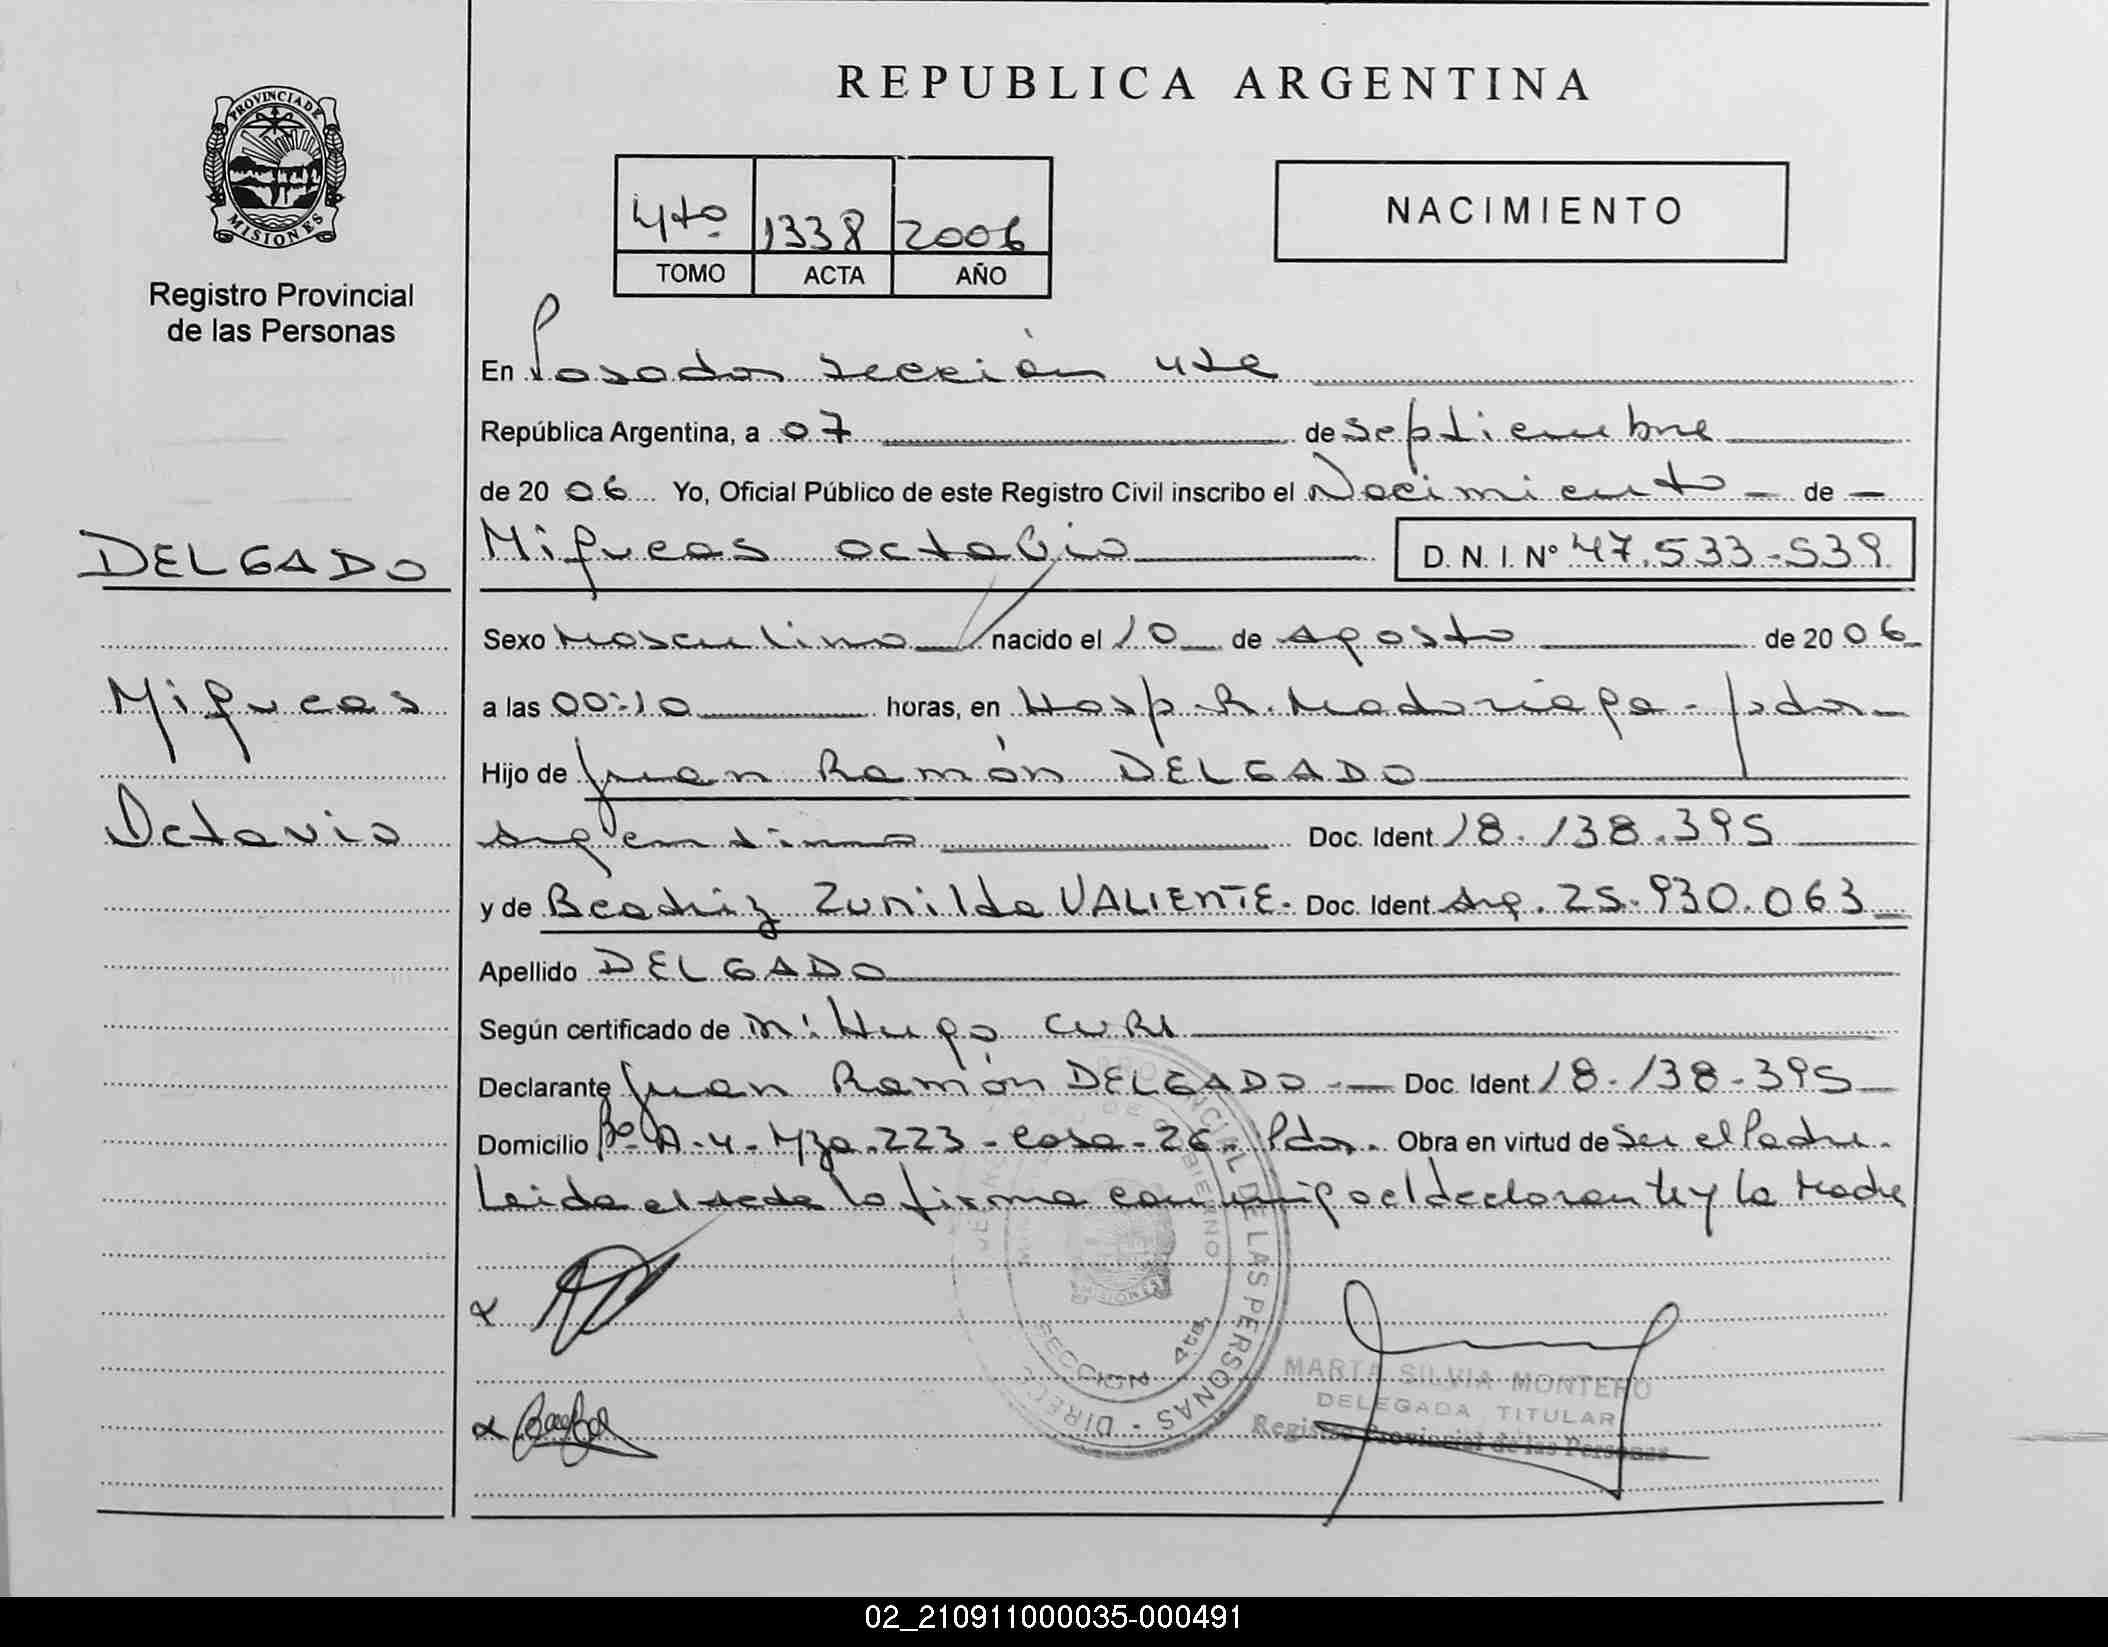 REPUBLICA ARGENTINA
PROVINCIA DE MISIONES
Registro Provincial
de las Personas
4to 1338 2006
TOMO ACTA AÑO
NACIMIENTO
En Posadas sección 4ta
República Argentina, a 07 de septiembre
de 20 06 Yo, Oficial Público de este Registro Civil inscribo el Nacimiento - de -
DELGADO
Miqueas Octavio D. N. I. Nº 47.533-539
Sexo Masculino nacido el 10 de Agosto de 20 06
Miqueas
a las 00:10 horas, en Hosp. R. Madariaga - Pdas
Hijo de Juan Ramón DELGADO
Octavio
Argentino Doc. Ident 18.138.395
y de Beatriz Zunilda VALIENTE. Doc. Ident Arg. 25.930.063
Apellido DELGADO
Según certificado de Hugo CURI
Declarante Juan Ramón DELGADO - Doc. Ident 18-138-395
Domicilio Bº A-4-Mza-223-casa-26-Pdas. Obra en virtud de ser el Padre.
Leida el acta la firma conmigo el declarante y la Madre
PROVINCIAL DE LAS PERSONAS - DIREC
GOBIERNO
MISIONES
SECCION 4ta.
MARTA SILVIA MONTERO
DELEGADA TITULAR
Registro Provincial de las Personas
02_210911000035-000491